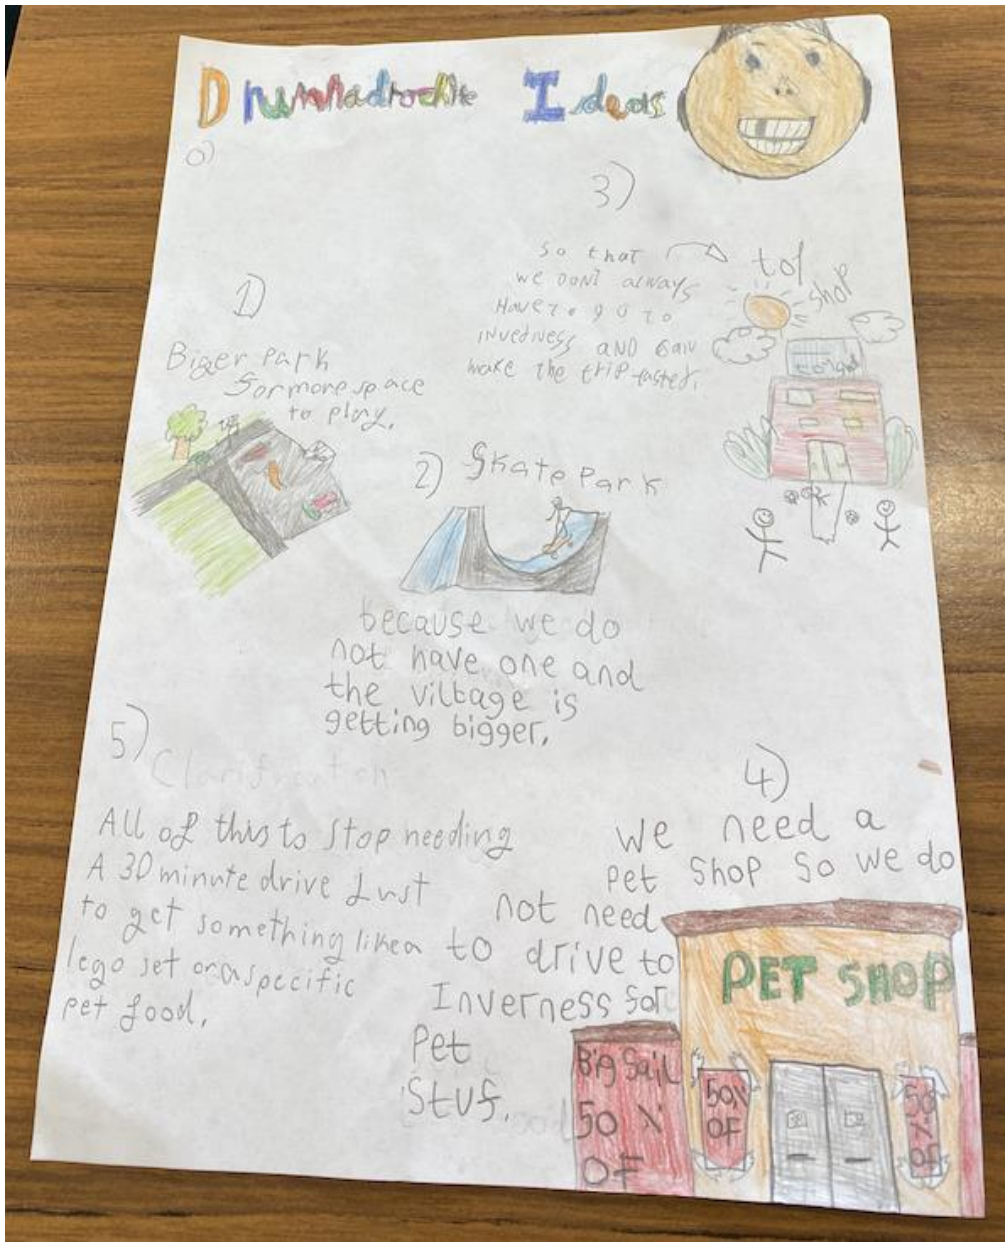 Drumnadrochit Ideas
0)
1)
Biger Park
for more space
to play.
2) Skate Park
because we do
not have one and
the villtage is
getting bigger.
3)
toy
shop
So that
we DONT always
HAVE TO go TO
INVERNESS AND CAN
make the trip faster.
4)
we need a
pet shop so we do
not need
to drive to
Inverness for
Pet
Stuf.
PET SHOP
Big Sail
50 %
OF
50%
OF
50
%
OF
5)
Clarification
All of this to stop needing
A 30 minute drive Just
to get something like a
lego set or a specific
pet food.